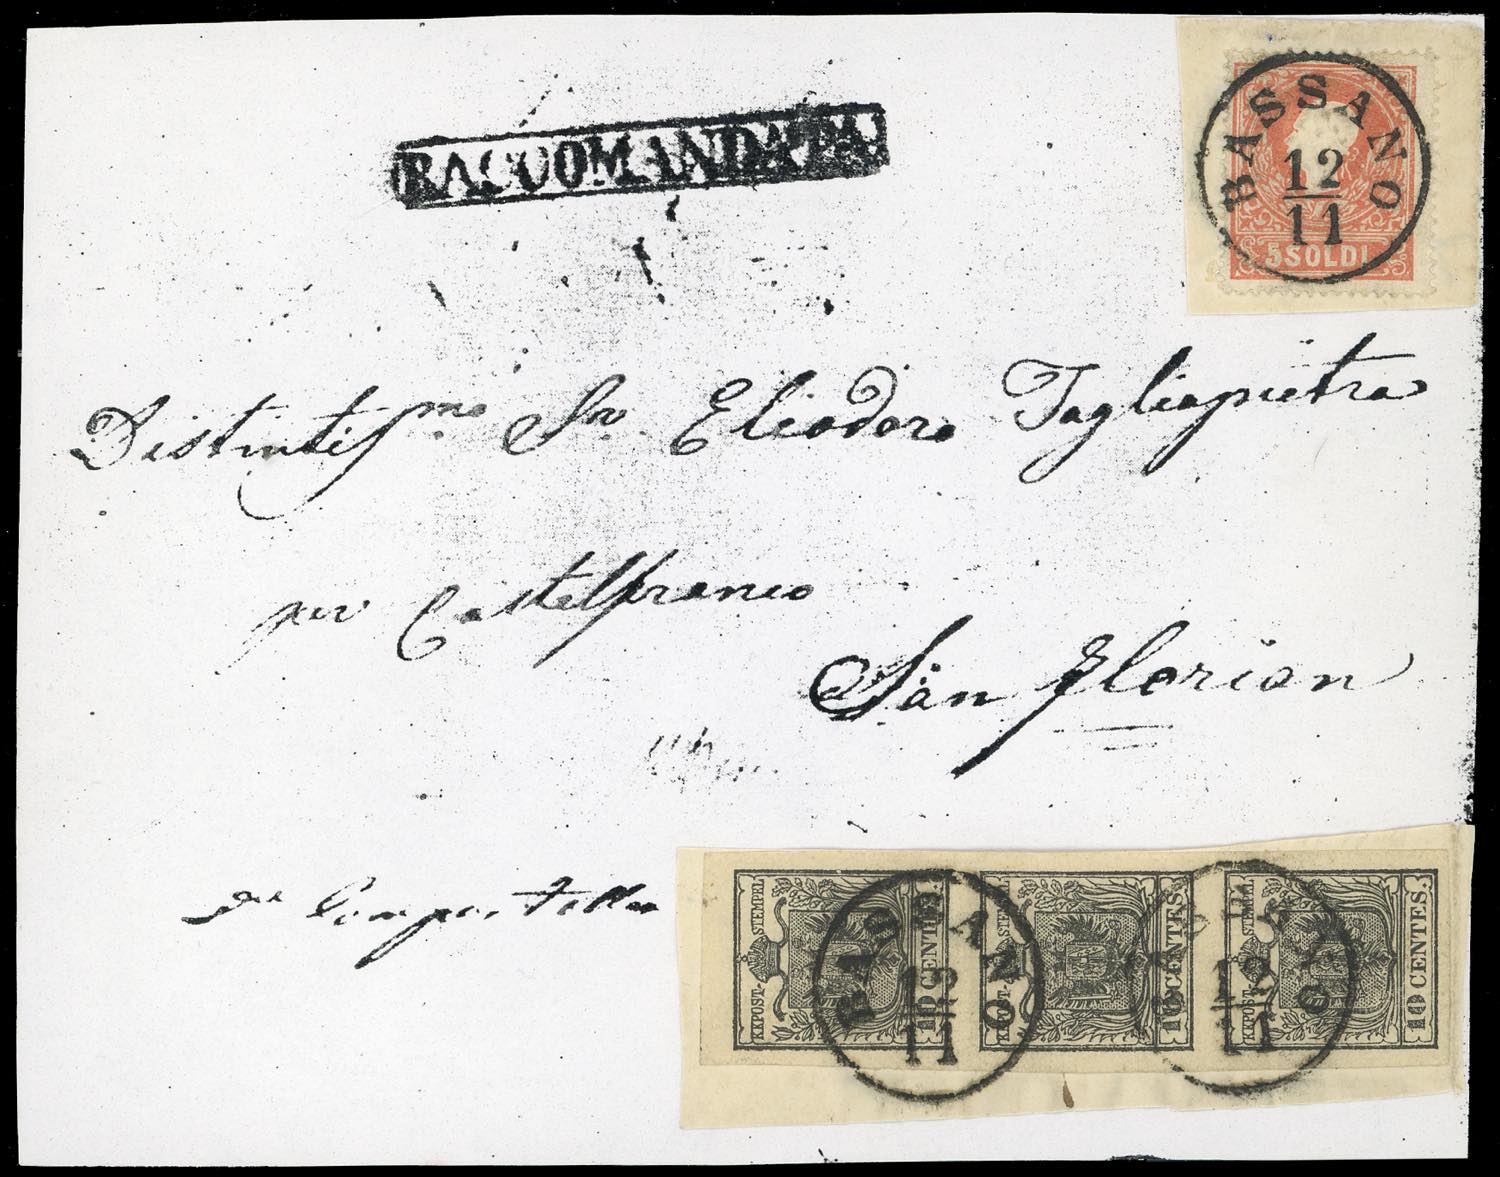 RACCOMANDATA
BASSANO
12
11
5 SOLDI
Distintis.mo Sr Eliodoro Tagliapietra
per Castelfranco
San Florian
KKPOST-STEMPEL
10 CENTES.
KKPOST-STEMPEL
10 CENTES.
KKPOST-STEMPEL
10 CENTES.
BASSANO
11
12
11